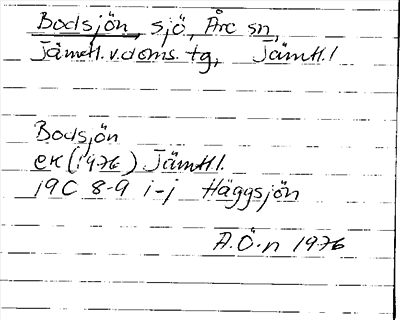 Bodsjön, sjö, Åre sn,
Jämtl. v. doms. tg, Jämtl.
Bodsjön
ek (1976) Jämtl.
19C 8-9 i-j Häggsjön
A.Ö-n 1976